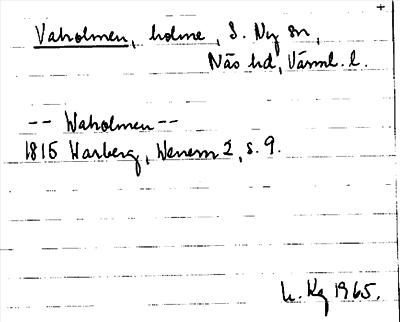 +
Vaholmen, holme, S. Ny sn,
Näs hd, Värml. l.
-- Waholmen --
1815 Warberg, Wenern 2, s. 9.
Kg 1965.